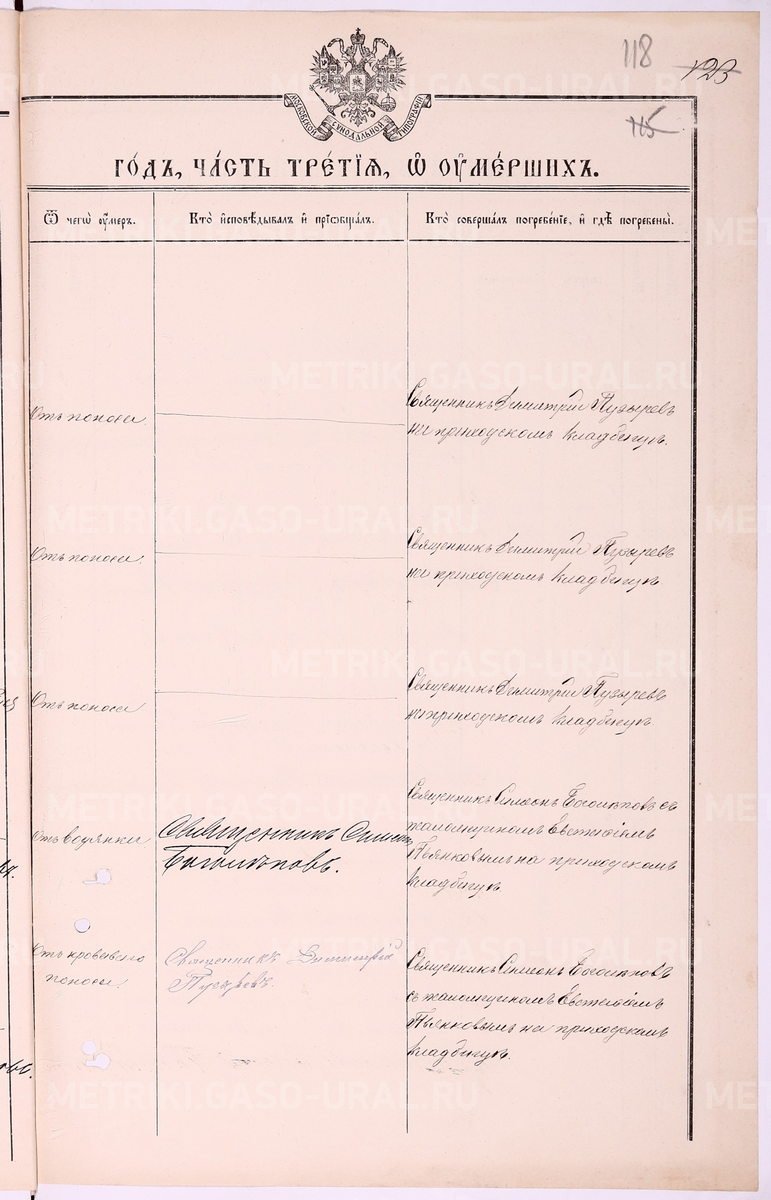 118
123
115
МОСКОВСКОЙ СУНОДАЛЬНОЙ ТИПОГРАФІИ
ГО́ДЪ, ЧА́СТЬ ТРЕ́ТІЯ, Ѿ ОУМЕ́РШИХЪ.
Ѿ чегѡ̀ оу́меръ.
Кто̀ и҆сповѣ́дывалъ и҆ прїѡбща́лъ.
Кто̀ соверша́лъ погребе́нїе, и҆ гдѣ̀ погребены̀.
Отъ поноса
Священникъ Димитрій Пузыревъ
на приходскомъ кладбищѣ.
Отъ поноса
Священникъ Димитрій Пузыревъ
на приходскомъ кладбищѣ.
Отъ поноса
Священникъ Димитрій Пузыревъ
на приходскомъ кладбищѣ.
Отъ водянки
Священникъ Симеонъ
Боголѣповъ.
Священникъ Симеонъ Боголѣповъ съ
псаломщикомъ Евгеніемъ
Пьянковымъ на приходскомъ
кладбищѣ.
Отъ кроваваго
поноса.
Священникъ Димитрій
Пузыревъ.
Священникъ Симеонъ Боголѣповъ
съ псаломщикомъ Евгеніемъ
Пьянковымъ на приходскомъ
кладбищѣ.
METRIKI.GASO-URAL.RU